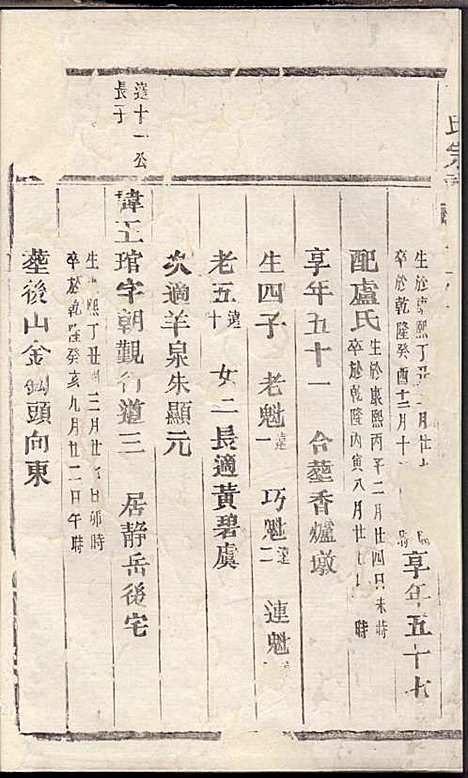 氏宗
生於康熙丁丑 月廿
卒於乾隆癸酉十二月十
享年五十七
配盧氏
生於康熙丙子二月廿四日未時
卒於乾隆丙寅八月廿 時
享年五十一 合塟香爐墩
生四子 老魁達一 巧魁達二 連魁達
老五達十 女二長適黃碧虞
次適羊泉朱顯元
達十一公
長子
諱工琯字朝觀行道三 居静岳後宅
生 熙丁丑 二月廿 日卯時
卒於乾隆癸亥九月廿二日午時
塟後山金 頭向東